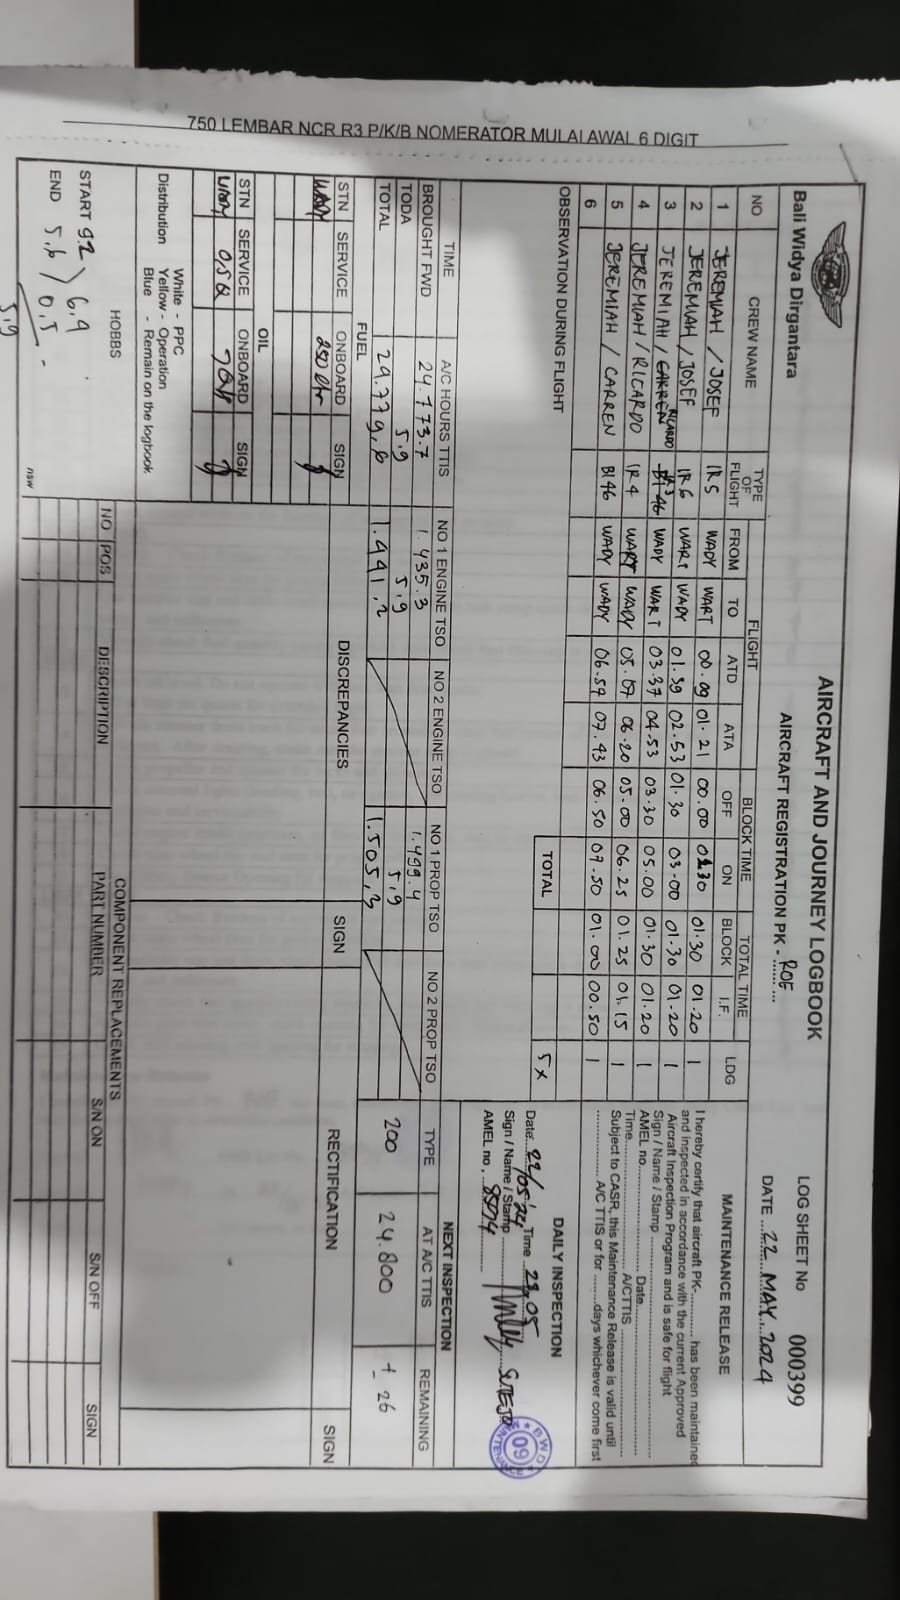 750 LEMBAR NCR R3 P/K/B NOMERATOR MULALAWAL 6 DIGIT
Bali Widya Dirgantara
AIRCRAFT AND JOURNEY LOGBOOK
AIRCRAFT REGISTRATION PK - ROE
LOG SHEET No 000399
DATE ...22 MAY 2024
NO CREW NAME TYPE OF FLIGHT FLIGHT BLOCK TIME TOTAL TIME LDG
FROM TO ATD ATA OFF ON BLOCK I.F.
1 JEREMIAH / JOSEF IR5 WADY WART 00.09 01.21 00.00 01.30 01.30 01.20 1
2 JEREMIAH / JOSEF IR6 WART WADY 01.39 02.53 01.30 03.00 01.30 01.20 1
3 JEREMIAH / CARREN RICARDO BI46 IR3 WADY WART 03.37 04.53 03.30 05.00 01.30 01.20 1
4 JEREMIAH / RICARDO IR4 WART WADY 05.07 06.20 05.00 06.25 01.25 01.15 1
5 JEREMIAH / CARREN BI46 WADY WADY 06.59 07.43 06.50 07.50 01.00 00.50 1
6
TOTAL 5x
OBSERVATION DURING FLIGHT
MAINTENANCE RELEASE
I hereby certify that aircraft PK-.......... has been maintained
and inspected in accordance with the current Approved
Aircraft Inspection Program and is safe for flight
Sign / Name / Stamp
AMEL no. Date
Time A/CTTIS
Subject to CASR, this Maintenance Release is valid until
A/C TTIS or for ........days whichever come first
DAILY INSPECTION
Date. 22/05/24 Time 23.05
Sign / Name / Stamp SUTEJO
AMEL no. 8974
BWD 09 MAINTENANCE
TIME A/C HOURS TTIS NO 1 ENGINE TSO NO 2 ENGINE TSO NO 1 PROP TSO NO 2 PROP TSO
BROUGHT FWD 24.773.7 1.435.3 1.499.4
TODA 5,9 5,9 5,9
TOTAL 24.779,6 1.441,2 1.505,3
NEXT INSPECTION
TYPE AT A/C TTIS REMAINING
200 24.800 ± 26
FUEL
STN SERVICE ONBOARD SIGN
WADY 250 ltr
OIL
STN SERVICE ONBOARD SIGN
WADY
DISCREPANCIES SIGN RECTIFICATION SIGN
Distribution White - PPC
Yellow - Operation
Blue - Remain on the logbook
COMPONENT REPLACEMENTS
NO POS DESCRIPTION PART NUMBER S/N ON S/N OFF SIGN
HOBBS
START 9.2 6,9
END 5,6 0,5 -
5,9
nsw